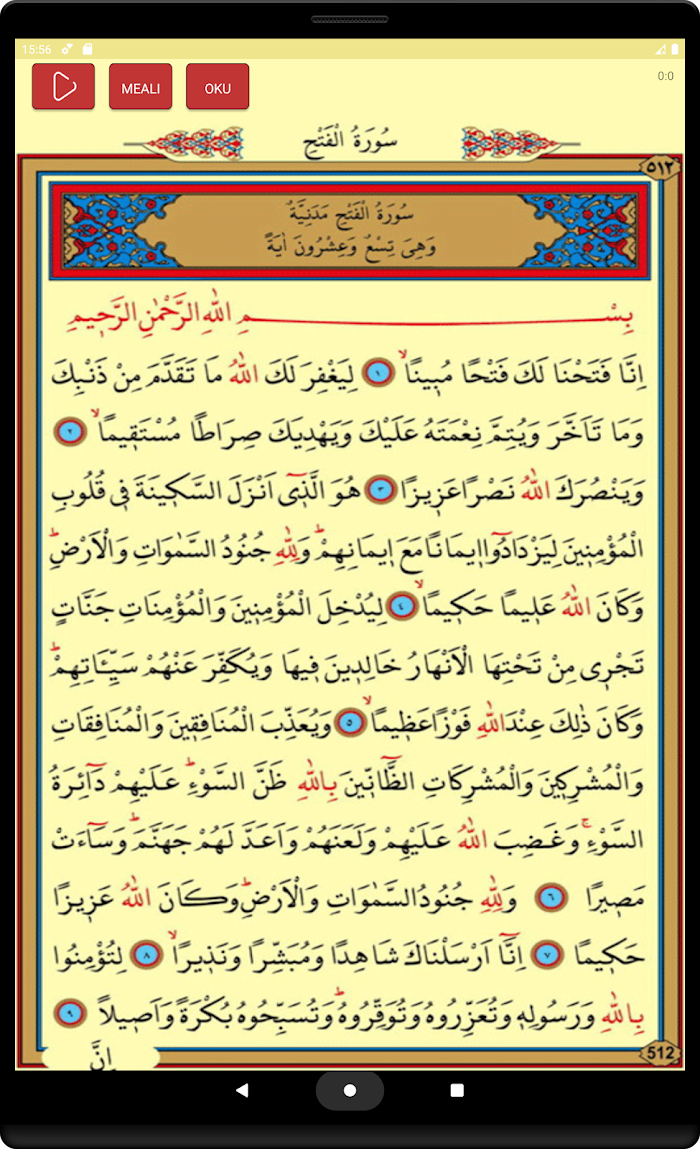 15:56
0:0
MEALI OKU
سُورَةُ الْفَتْحِ
٥١٢
سُورَةُ الْفَتْحِ مَدَنِيَّةٌ
وَهِىَ تِسْعٌ وَعِشْرُونَ اٰيَةً
بِسْمِ اللّٰهِ الرَّحْمٰنِ الرَّح۪يمِ
اِنَّا فَتَحْنَا لَكَ فَتْحًا مُب۪ينًاۙ ١ لِيَغْفِرَ لَكَ اللّٰهُ مَا تَقَدَّمَ مِنْ ذَنْبِكَ
وَمَا تَاَخَّرَ وَيُتِمَّ نِعْمَتَهُ عَلَيْكَ وَيَهْدِيَكَ صِرَاطًا مُسْتَق۪يمًاۙ ٢
وَيَنْصُرَكَ اللّٰهُ نَصْرًا عَز۪يزًا ٣ هُوَ الَّذ۪ٓى اَنْزَلَ السَّك۪ينَةَ ف۪ى قُلُوبِ
الْمُؤْمِن۪ينَ لِيَزْدَادُٓوا ا۪يمَانًا مَعَ ا۪يمَانِهِمْۜ وَلِلّٰهِ جُنُودُ السَّمٰوَاتِ وَالْاَرْضِۜ
وَكَانَ اللّٰهُ عَل۪يمًا حَك۪يمًاۙ ٤ لِيُدْخِلَ الْمُؤْمِن۪ينَ وَالْمُؤْمِنَاتِ جَنَّاتٍ
تَجْر۪ى مِنْ تَحْتِهَا الْاَنْهَارُ خَالِد۪ينَ ف۪يهَا وَيُكَفِّرَ عَنْهُمْ سَيِّـَٔاتِهِمْۜ
وَكَانَ ذٰلِكَ عِنْدَ اللّٰهِ فَوْزًا عَظ۪يمًاۙ ٥ وَيُعَذِّبَ الْمُنَافِق۪ينَ وَالْمُنَافِقَاتِ
وَالْمُشْرِك۪ينَ وَالْمُشْرِكَاتِ الظَّٓانّ۪ينَ بِاللّٰهِ ظَنَّ السَّوْءِۜ عَلَيْهِمْ دَٓائِرَةُ
السَّوْءِۚ وَغَضِبَ اللّٰهُ عَلَيْهِمْ وَلَعَنَهُمْ وَاَعَدَّ لَهُمْ جَهَنَّمَۜ وَسَٓاءَتْ
مَص۪يرًا ٦ وَلِلّٰهِ جُنُودُ السَّمٰوَاتِ وَالْاَرْضِۜ وَكَانَ اللّٰهُ عَز۪يزًا
حَك۪يمًا ٧ اِنَّٓا اَرْسَلْنَاكَ شَاهِدًا وَمُبَشِّرًا وَنَذ۪يرًاۙ ٨ لِتُؤْمِنُوا
بِاللّٰهِ وَرَسُولِه۪ وَتُعَزِّرُوهُ وَتُوَقِّرُوهُۜ وَتُسَبِّحُوهُ بُكْرَةً وَاَص۪يلًا ٩
اِنَّ
512